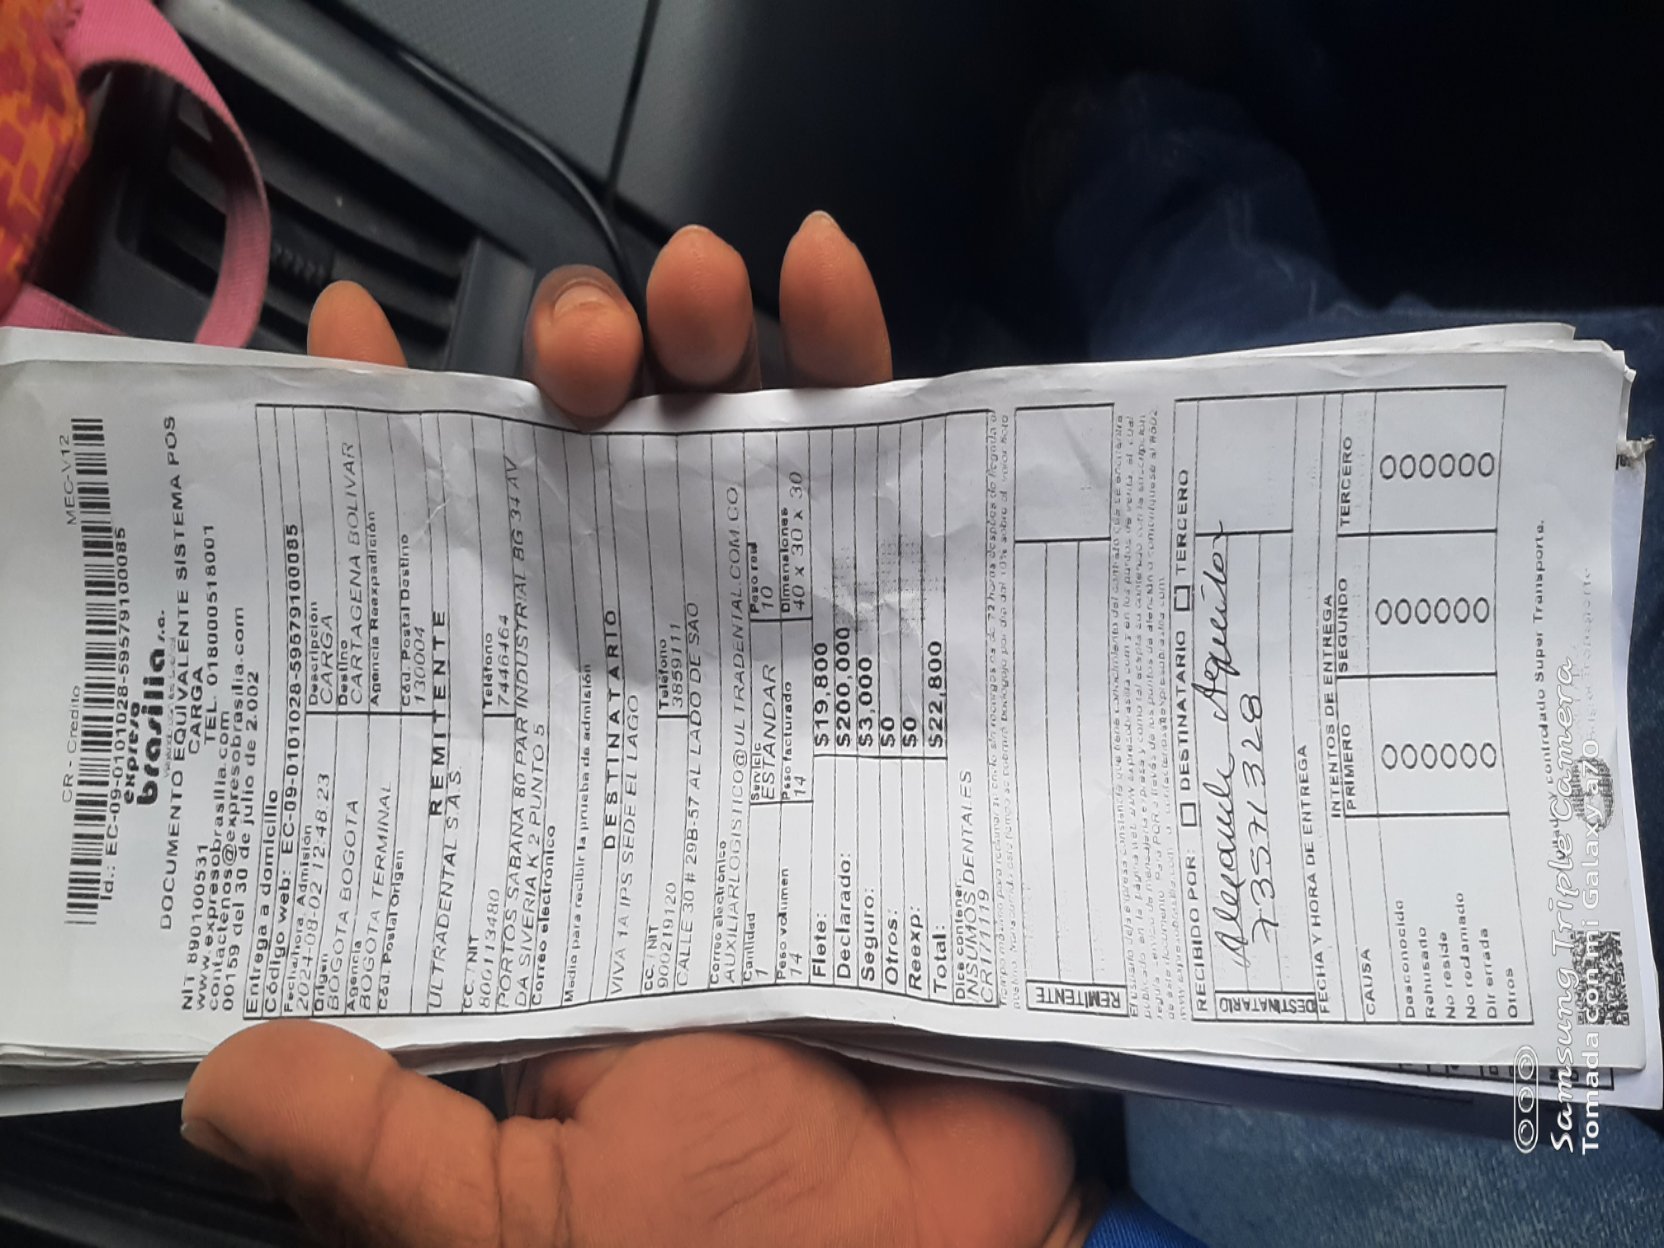 CR - Credito MEC-V12
Id.: EC-09-0101028-59579100085
expreso
brasilia s.a.
DOCUMENTO EQUIVALENTE SISTEMA POS
CARGA
NIT 890100531 TEL. 018000518001
www.expresobrasilia.com
contactenos@expresobrasilia.com
00159 del 30 de julio de 2.002
Entrega a domicilio
Código web: EC-09-0101028-59579100085
Fecha/hora. Admisión Descripción
2024-08-02 12:48:23 CARGA
Origen Destino
BOGOTA BOGOTA CARTAGENA BOLIVAR
Agencia Agencia Reexpedición
BOGOTA TERMINAL
Cód. Postal Origen Cód. Postal Destino
130004
REMITENTE
ULTRADENTAL S.A.S.
CC. / NIT Teléfono
800113480 7446464
PORTOS SABANA 80 PAR INDUSTRIAL BG 34 AV
DA SIVERIA K 2 PUNTO 5
Correo electrónico
Medio para recibir la prueba de admisión
DESTINATARIO
VIVA 1A IPS SEDE EL LAGO
CC. / NIT Teléfono
900219120 3859111
CALLE 30 # 29B-57 AL LADO DE SAO
Correo electrónico
AUXILIARLOGISTICO@ULTRADENTAL.COM.CO
Cantidad Servicio Peso real
1 ESTANDAR 10
Peso volumen Peso facturado Dimensiones
14 14 40 x 30 x 30
Flete: $19,800
Declarado: $200,000
Seguro: $3,000
Otros: $0
Reexp: $0
Total: $22,800
Dice contener:
INSUMOS DENTALES
CR1171119
REMITENTE
RECIBIDO POR: DESTINATARIO TERCERO
DESTINATARIO
73571328
FECHA Y HORA DE ENTREGA
INTENTOS DE ENTREGA
CAUSA PRIMERO SEGUNDO TERCERO
Desconocido
Rehusado
No reside
No reclamado
Dir errada
Otros
controlado Super Transporte.
Samsung Triple Camera
Tomada con mi Galaxy a20